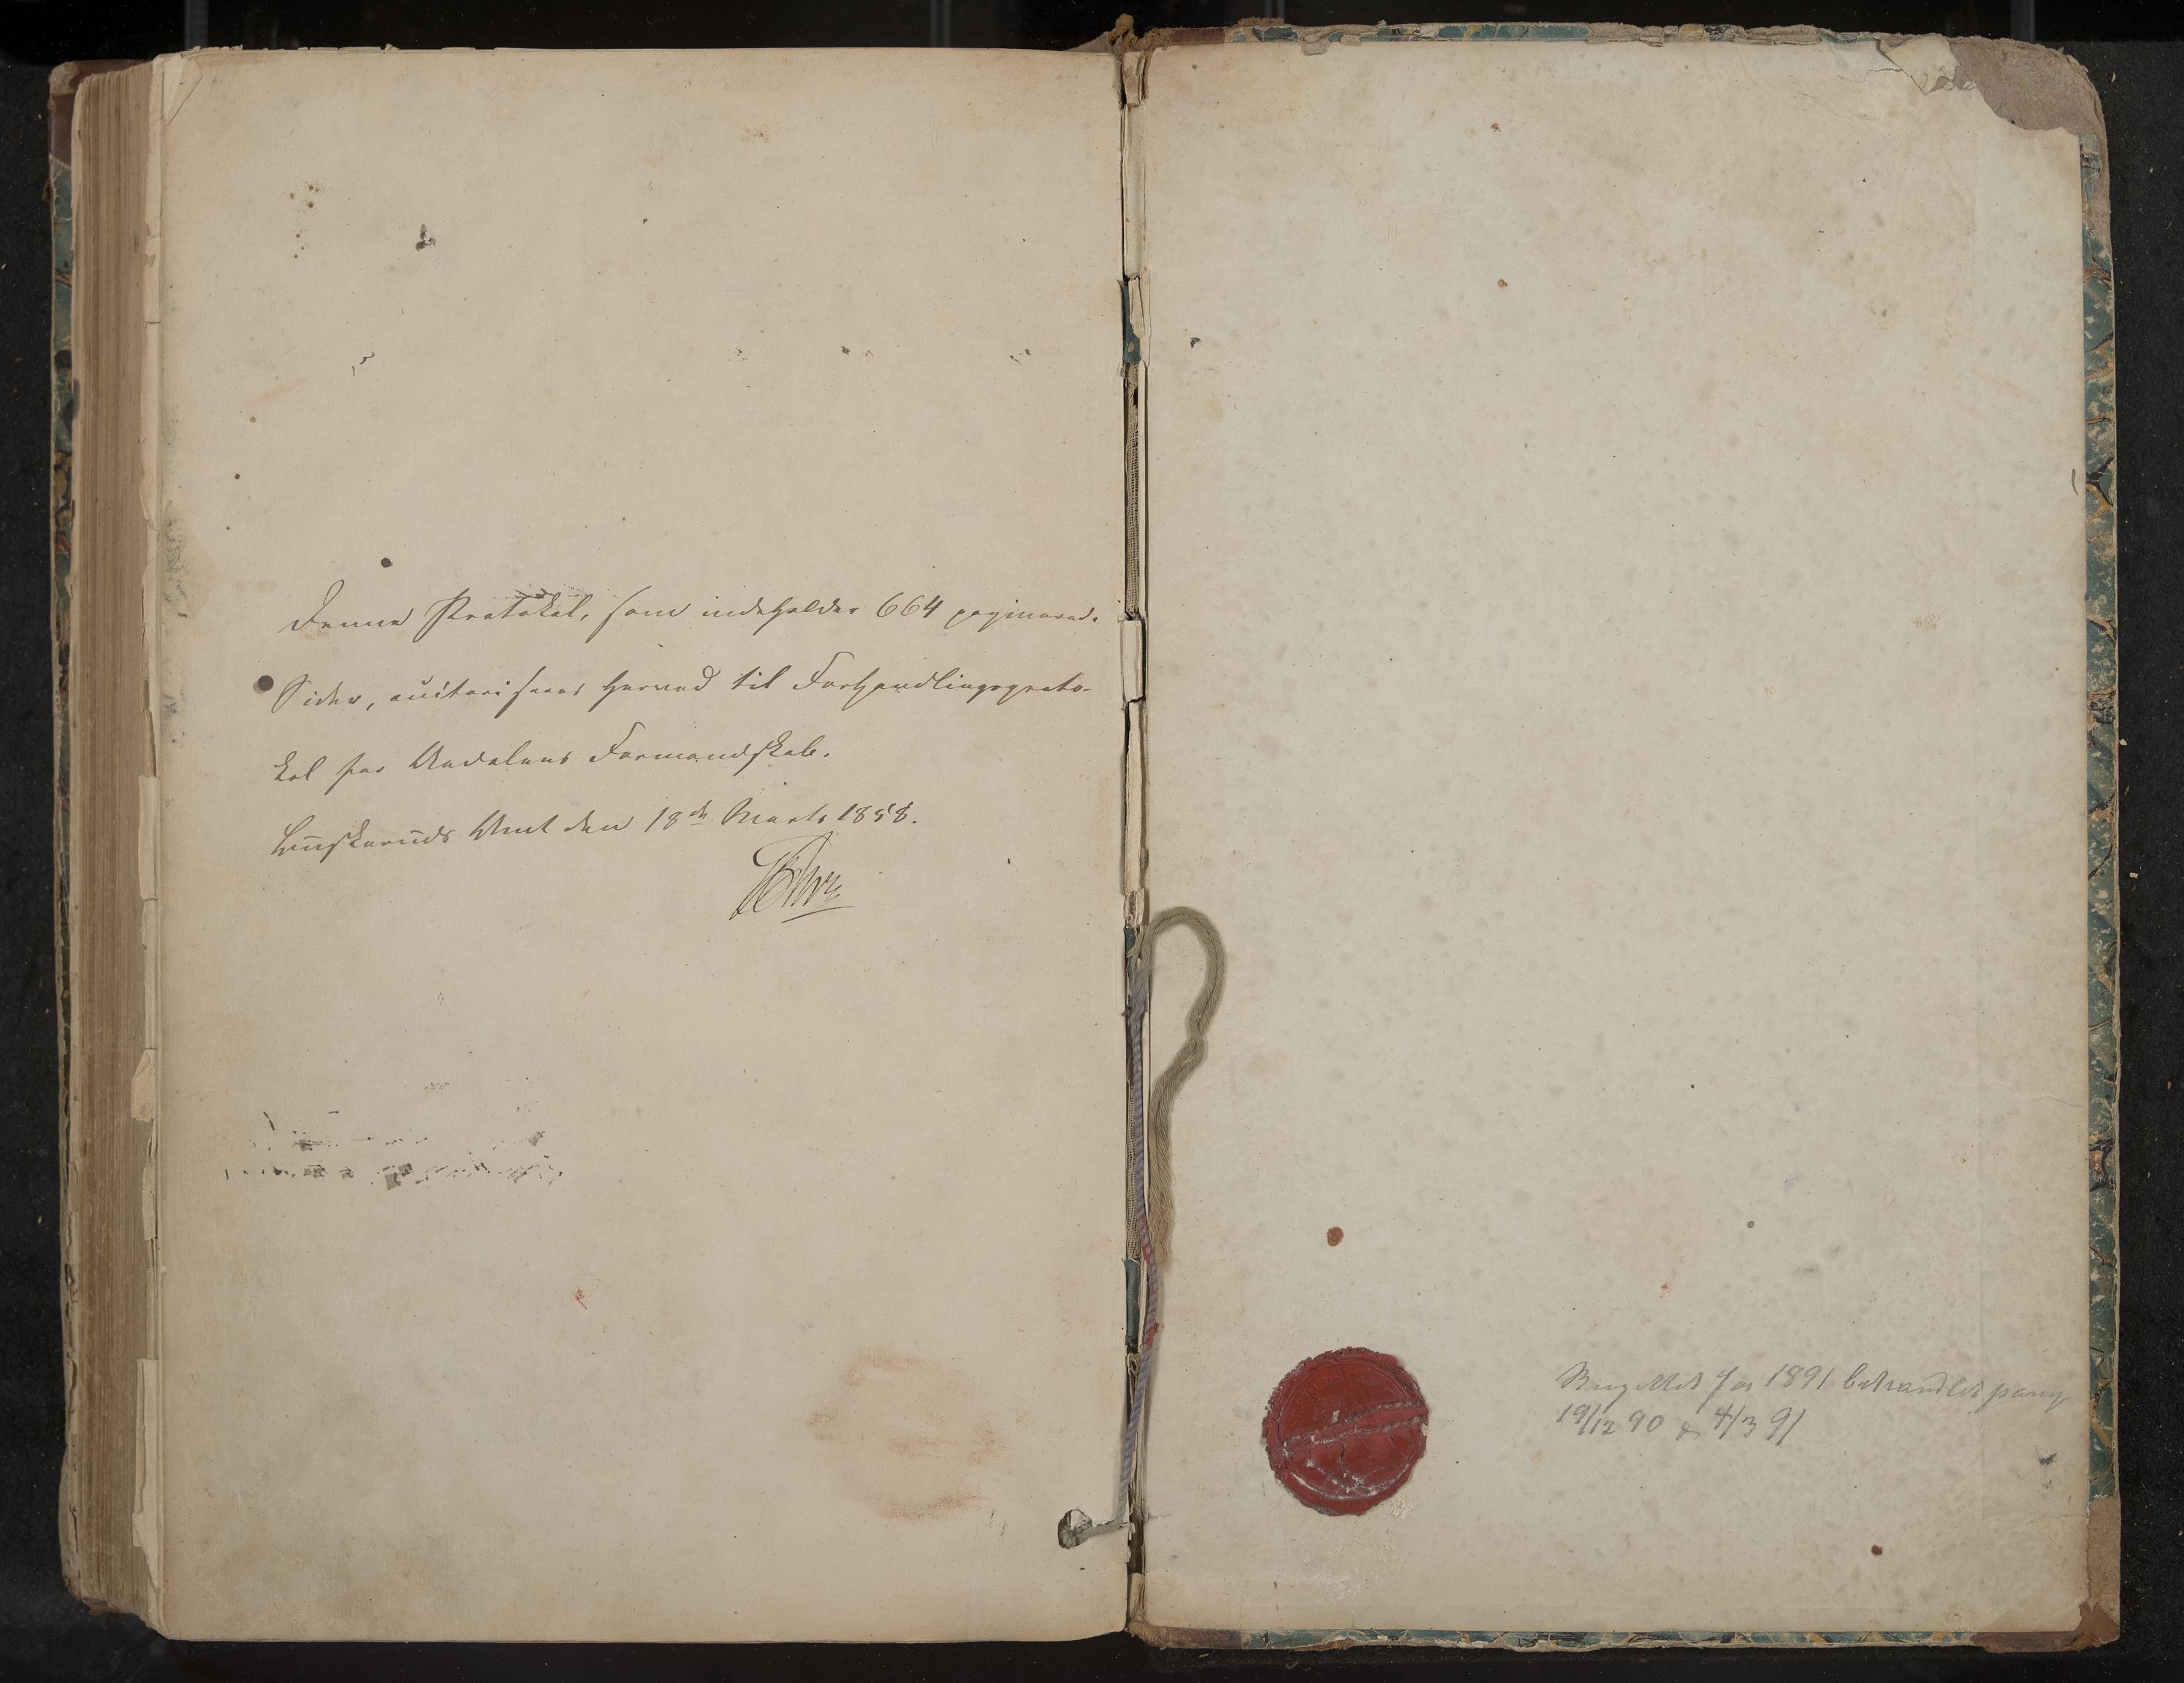 Denne Protokol, som indeholder 664 paginerede
Sider, autoriseres herved til Forhandlingsproto-
kol for Aadalens Formandskab.
Buskeruds Amt den 18de Marts 1858.
Budgettet for 1891 behandlet
19/12 90 & 4/3 91